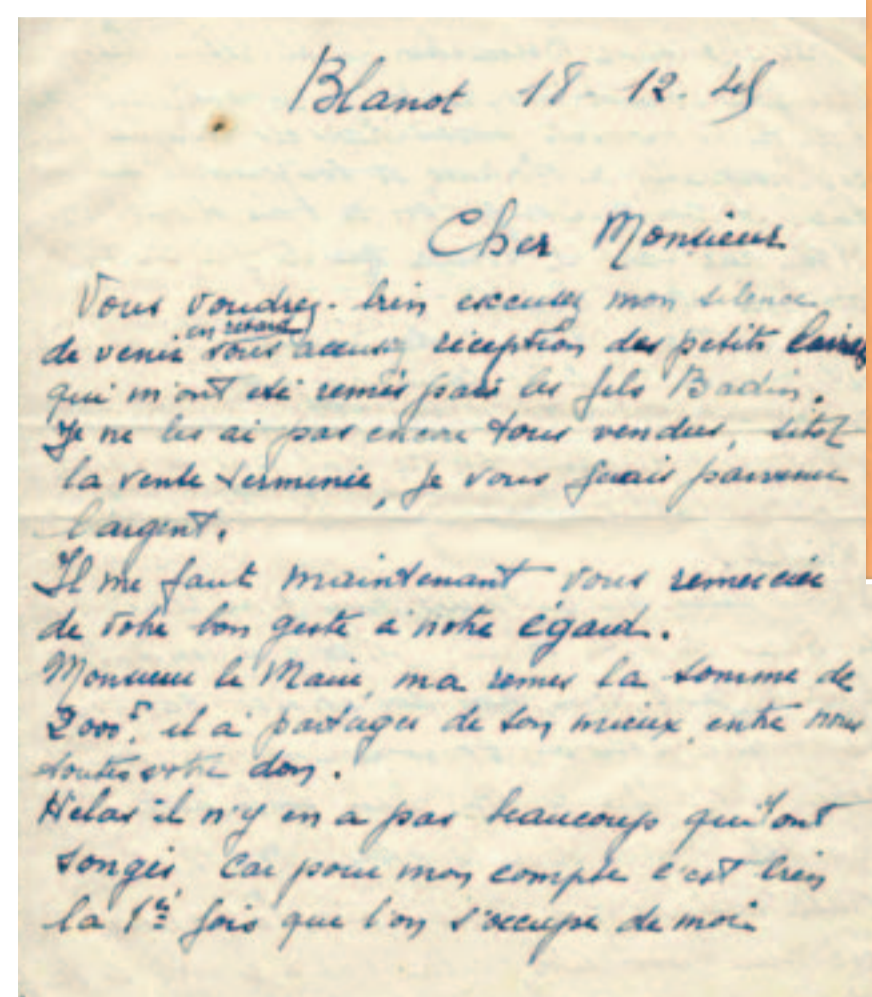 Blanot 18 12. 45
Cher Monsieur
Vous voudrez bien excuser mon silence
en retard
de venir vous accusez réception des petits livres
qui m'ont été remis pars les fils Badin.
Je ne les ai pas encore tous vendus, sitot
la vente terminée, je vous ferais parvenir
l'argent.
Il me faut maintenant vous remercier
de votre bon geste à notre égard.
Monsieur le Maire, ma remis la somme de
2000F, il a partager de son mieux entre nous
toutes votre don.
Helas il n'y en a pas beaucoup qui ont
songés car pour mon compte c'est bien
la 1ère fois que l'on s'occupe de moi